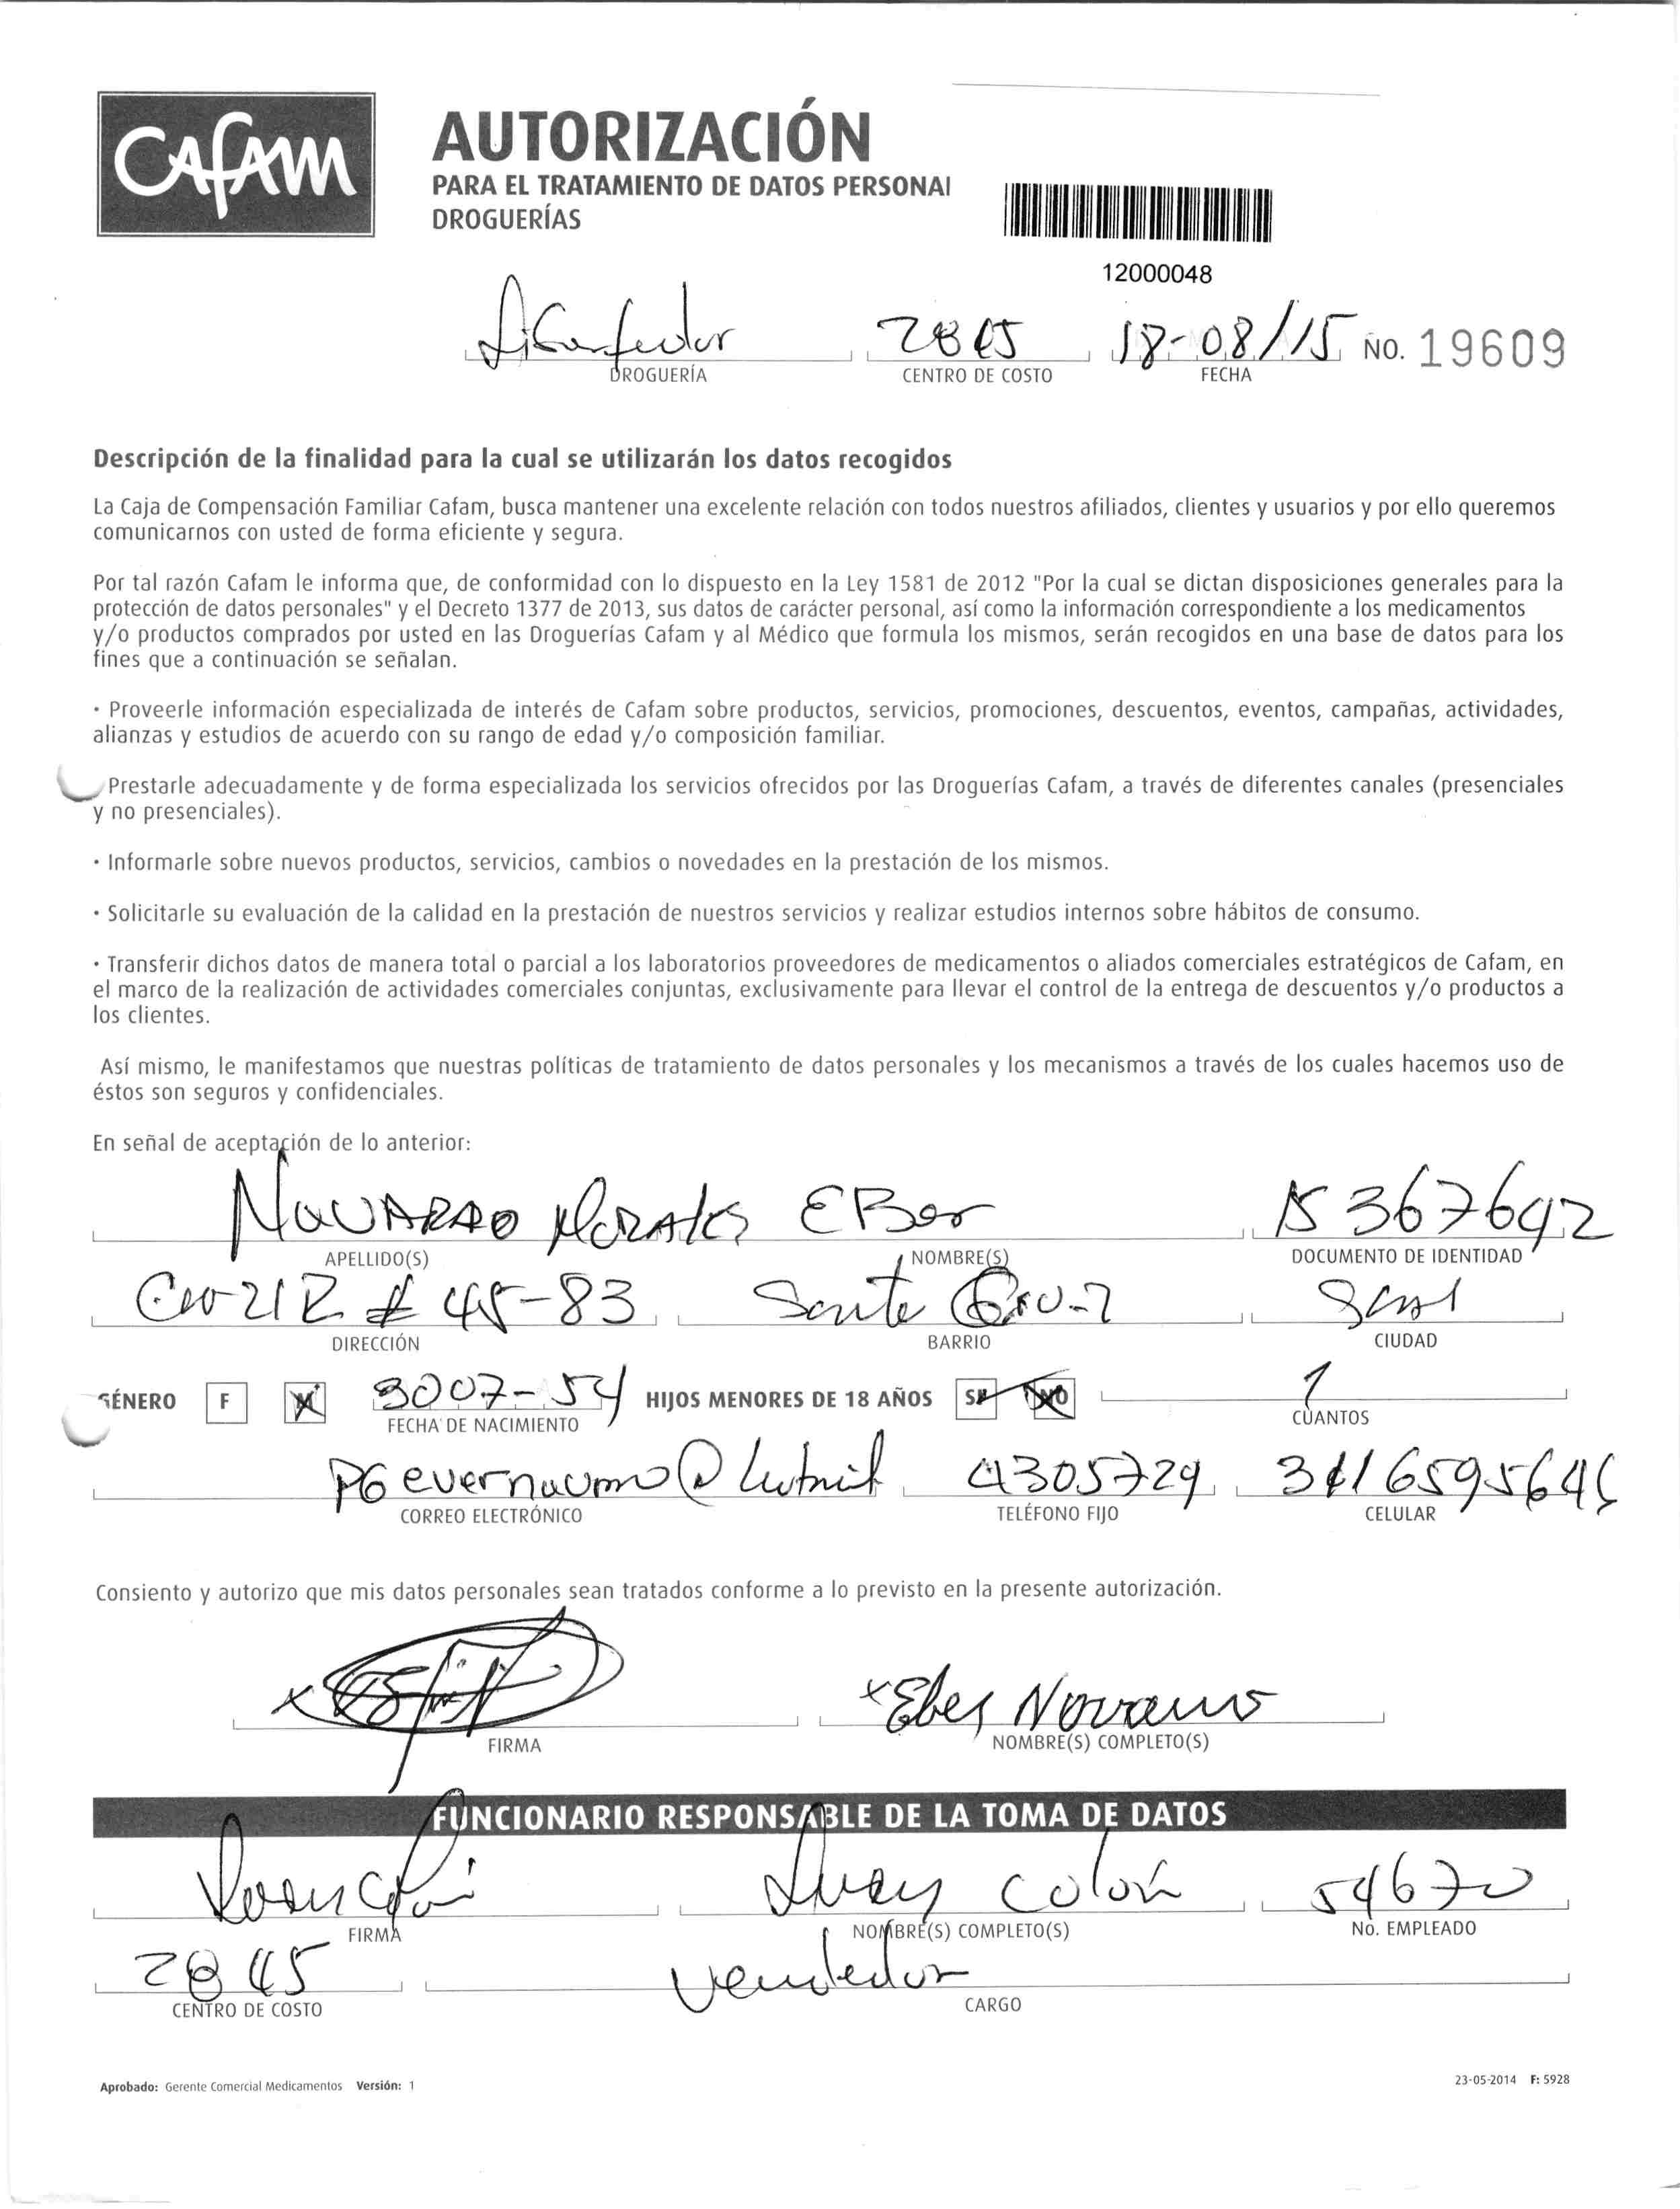 CAFAM
AUTORIZACIÓN
PARA EL TRATAMIENTO DE DATOS PERSONAL
DROGUERÍAS
12000048
18-08/15 No. 19609
DROGUERÍA CENTRO DE COSTO FECHA
Descripción de la finalidad para la cual se utilizarán los datos recogidos
La Caja de Compensación Familiar Cafam, busca mantener una excelente relación con todos nuestros afiliados, clientes y usuarios y por ello queremos
comunicarnos con usted de forma eficiente y segura.
Por tal razón Cafam le informa que, de conformidad con lo dispuesto en la Ley 1581 de 2012 "Por la cual se dictan disposiciones generales para la
protección de datos personales" y el Decreto 1377 de 2013, sus datos de carácter personal, así como la información correspondiente a los medicamentos
y/o productos comprados por usted en las Droguerías Cafam y al Médico que formula los mismos, serán recogidos en una base de datos para los
fines que a continuación se señalan.
· Proveerle información especializada de interés de Cafam sobre productos, servicios, promociones, descuentos, eventos, campañas, actividades,
alianzas y estudios de acuerdo con su rango de edad y/o composición familiar.
Prestarle adecuadamente y de forma especializada los servicios ofrecidos por las Droguerías Cafam, a través de diferentes canales (presenciales
y no presenciales).
· Informarle sobre nuevos productos, servicios, cambios o novedades en la prestación de los mismos.
· Solicitarle su evaluación de la calidad en la prestación de nuestros servicios y realizar estudios internos sobre hábitos de consumo.
· Transferir dichos datos de manera total o parcial a los laboratorios proveedores de medicamentos o aliados comerciales estratégicos de Cafam, en
el marco de la realización de actividades comerciales conjuntas, exclusivamente para llevar el control de la entrega de descuentos y/o productos a
los clientes.
Así mismo, le manifestamos que nuestras políticas de tratamiento de datos personales y los mecanismos a través de los cuales hacemos uso de
éstos son seguros y confidenciales.
En señal de aceptación de lo anterior:
Navarro Morales Eber 15367642
APELLIDO(S) NOMBRE(S) DOCUMENTO DE IDENTIDAD
# 45-83 Santa Cruz
DIRECCIÓN BARRIO CIUDAD
GÉNERO F M 3007-54 HIJOS MENORES DE 18 AÑOS SI NO 1
FECHA DE NACIMIENTO CUANTOS
4305729
CORREO ELECTRÓNICO TELÉFONO FIJO CELULAR
Consiento y autorizo que mis datos personales sean tratados conforme a lo previsto en la presente autorización.
x x Eber Navarro
FIRMA NOMBRE(S) COMPLETO(S)
FUNCIONARIO RESPONSABLE DE LA TOMA DE DATOS
Colón 54670
FIRMA NOMBRE(S) COMPLETO(S) No. EMPLEADO
2845 Vendedor
CENTRO DE COSTO CARGO
Aprobado: Gerente Comercial Medicamentos Versión: 1 23-05-2014 F: 5928